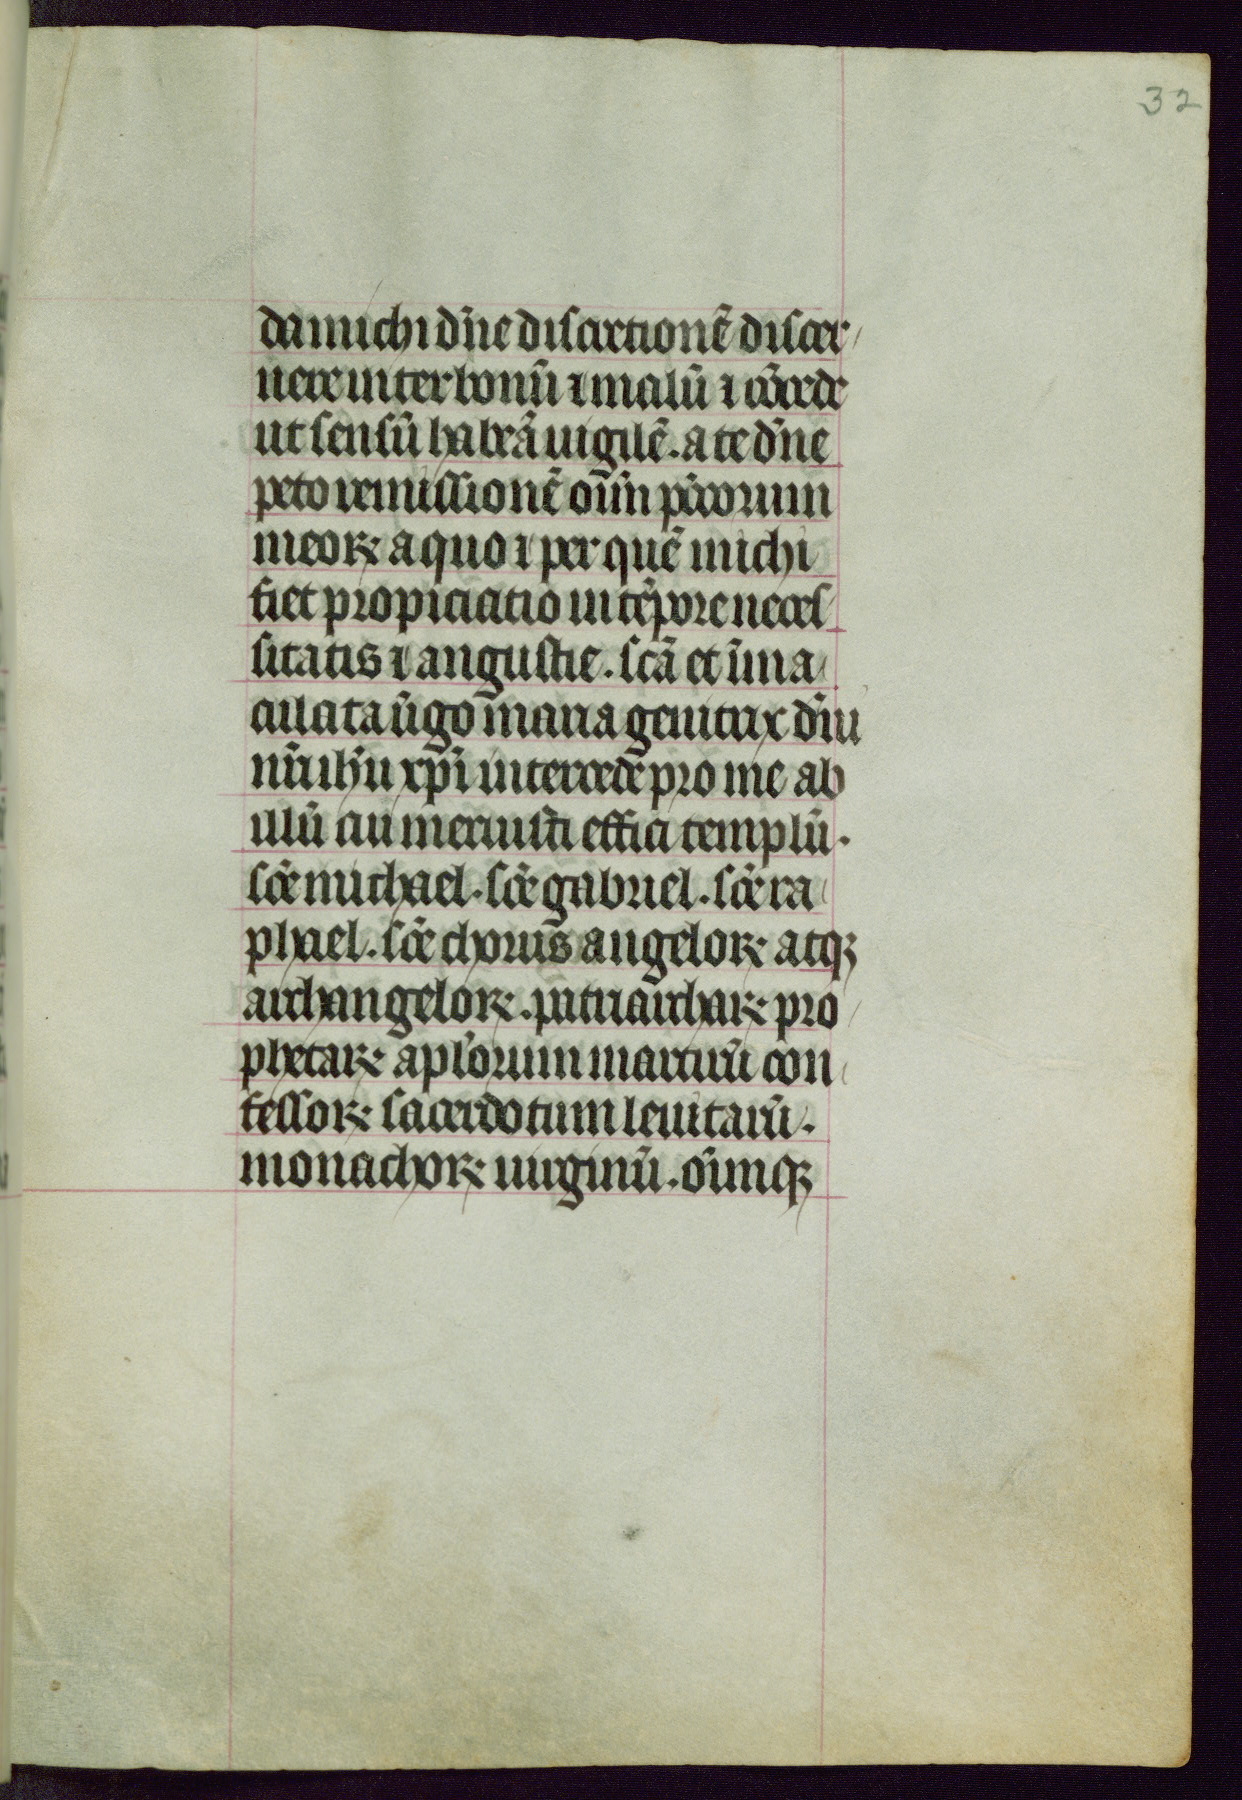 32
da michi dn̄e discretionē discer
nere inter bonū ⁊ malū ⁊ cōcede
ut sensū habeā uigilē. a te dn̄e
peto remissionē oīm pc̄corum
meoꝝ a quo ⁊ per quē michi
fiet propiciatio in tēpore neces
sitatis ⁊ angustie. sc̄a et īma
culata ūgo maria genitrix dn̄i
nr̄i ih̄u xp̄i intercede pro me ad
illū cui meruisti effici templū.
sc̄e michael. sc̄e gabriel. sc̄e ra
phael. sc̄e chorus angeloꝝ atqꝫ
archangeloꝝ. patriarchaꝝ pro
phetaꝝ apl̄orum martirū con
fessoꝝ sacerdotum leuitarū.
monachoꝝ uirginū. oīmqꝫ